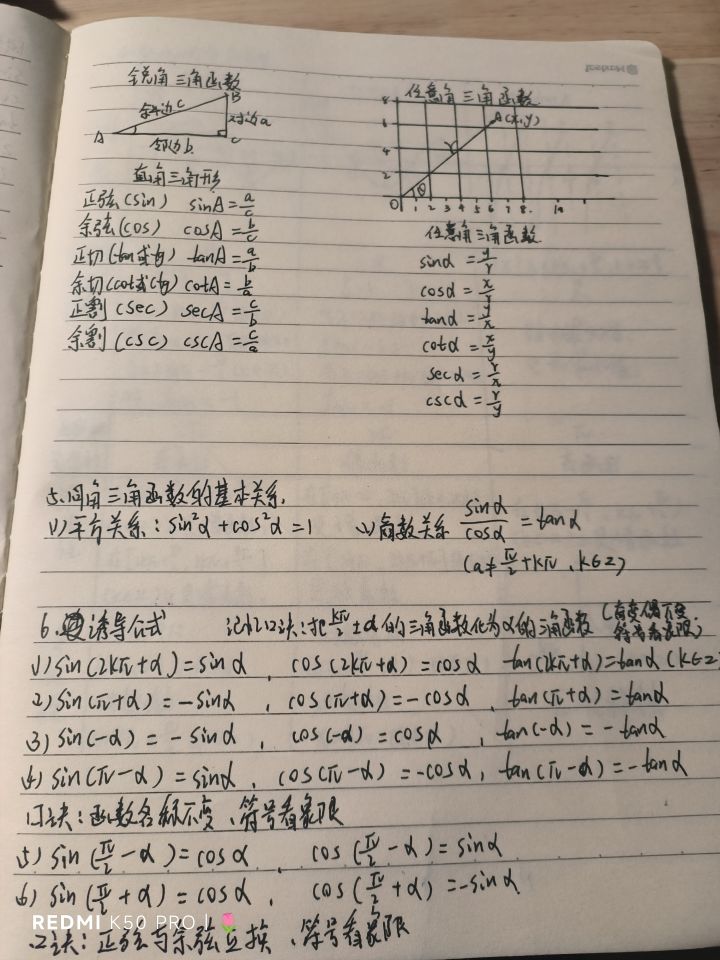 锐角三角函数
B
斜边c
对边a
A
邻边b
C
直角三角形
正弦(sin) sinA=a/c
余弦(cos) cosA=b/c
正切(tan或tg) tanA=a/b
余切(cot或ctg) cotA=b/a
正割(sec) secA=c/b
余割(csc) cscA=c/a
任意角三角函数
8
6
4
2
A(x,y)
r
θ
O 1 2 3 4 5 6 7 8 10
任意角三角函数
sinα=y/r
cosα=x/r
tanα=y/x
cotα=x/y
secα=r/x
cscα=r/y
5.同角三角函数的基本关系
(1)平方关系:sin²α+cos²α=1 (2)商数关系 sinα/cosα=tanα
(α≠π/2+kπ,k∈Z)
6.诱导公式 记忆口诀:把kπ/2±α的三角函数化为α的三角函数(奇变偶不变
符号看象限)
1)sin(2kπ+α)=sinα, cos(2kπ+α)=cosα tan(2kπ+α)=tanα(k∈Z)
2)sin(π+α)=-sinα, cos(π+α)=-cosα, tan(π+α)=tanα
3)sin(-α)=-sinα, cos(-α)=cosα, tan(-α)=-tanα
4)sin(π-α)=sinα, cos(π-α)=-cosα, tan(π-α)=-tanα
口诀:函数名称不变、符号看象限
5)sin(π/2-α)=cosα, cos(π/2-α)=sinα
6)sin(π/2+α)=cosα, cos(π/2+α)=-sinα
REDMI K50 PRO |
口诀:正弦与余弦互换、符号看象限